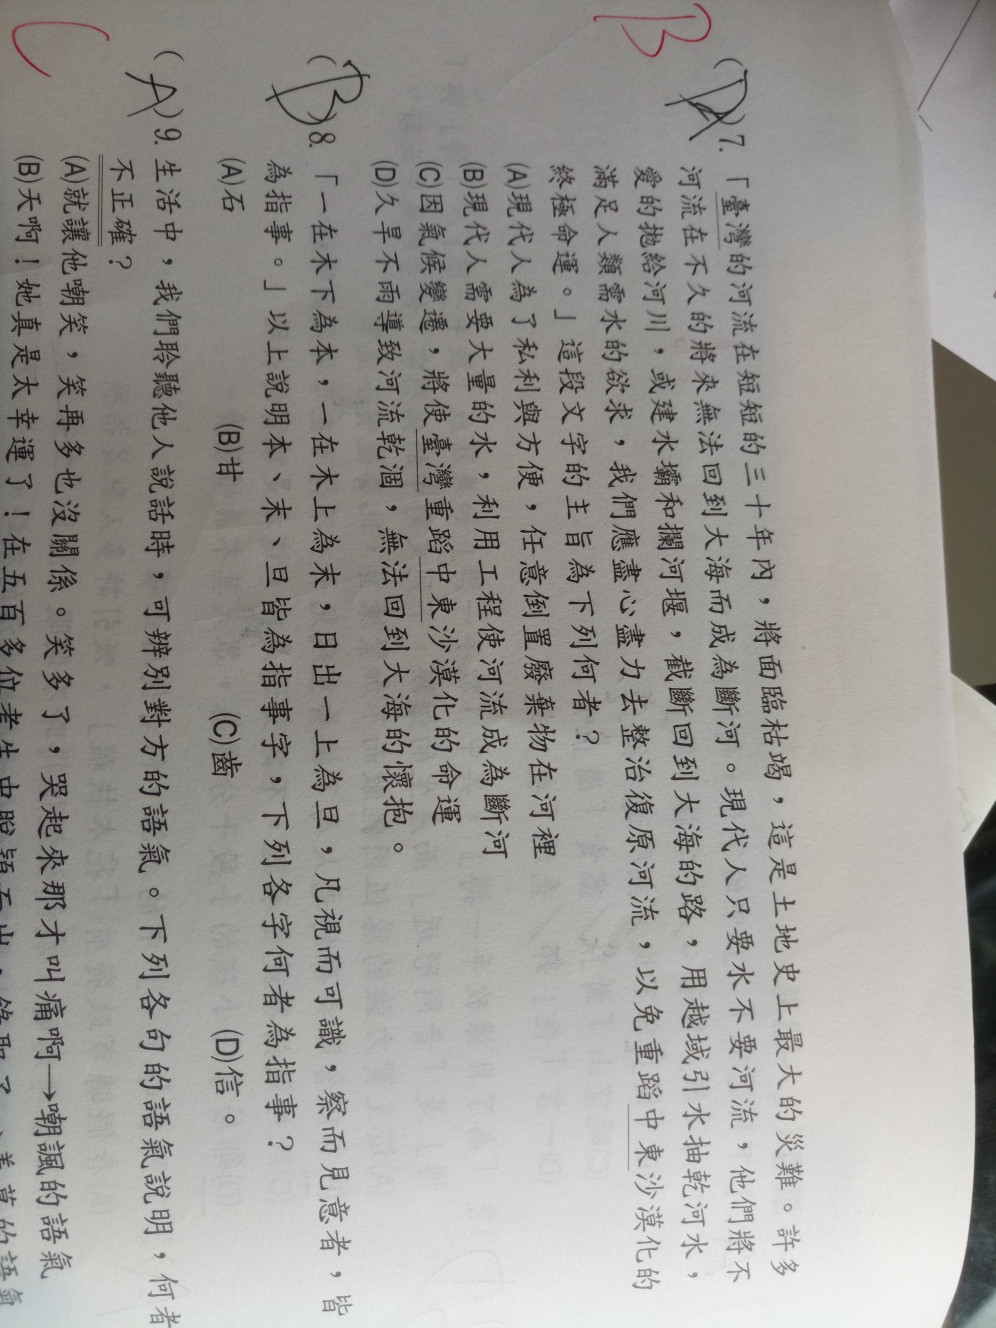 B
(D)7.「臺灣的河流在短短的三十年內，將面臨枯竭，這是土地史上最大的災難。許多
河流在不久的將來無法回到大海而成為斷河。現代人只要水不要河流，他們將不
愛的拋給河川，或建水壩和攔河堰，截斷回到大海的路，用越域引水抽乾河水，
滿足人類需水的欲求，我們應盡心盡力去整治復原河流，以免重蹈中東沙漠化的
終極命運。」這段文字的主旨為下列何者？
(A)現代人為了私利與方便，任意倒置廢棄物在河裡
(B)現代人需要大量的水，利用工程使河流成為斷河
(C)因氣候變遷，將使臺灣重蹈中東沙漠化的命運
(D)久旱不雨導致河流乾涸，無法回到大海的懷抱。
(B)8.「一在木下為本，一在木上為末，日出一上為旦，凡視而可識，察而見意者，皆
為指事。」以上說明本、末、旦皆為指事字，下列各字何者為指事？
(A)石 (B)甘 (C)齒 (D)信。
C
(A)9. 生活中，我們聆聽他人說話時，可辨別對方的語氣。下列各句的語氣說明，何者
不正確？
(A)就讓他嘲笑，笑再多也沒關係。笑多了，哭起來那才叫痛啊→嘲諷的語氣
(B)天啊！她真是太幸運了！在五百多位考生中脫穎而出，錄取了